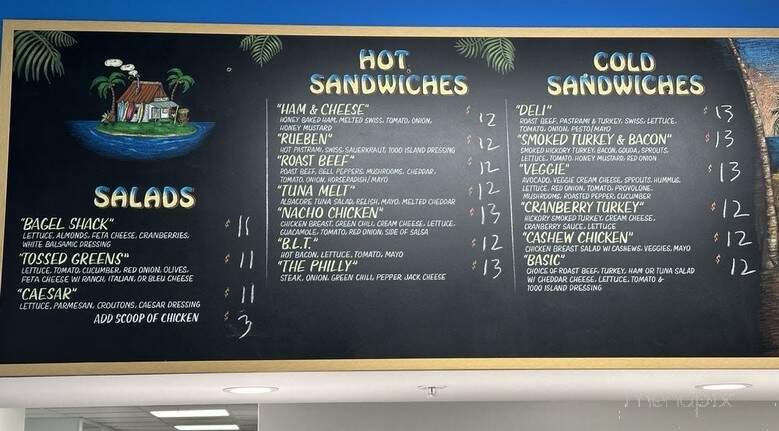 SALADS
"BAGEL SHACK" $11
LETTUCE, ALMONDS, FETA CHEESE, CRANBERRIES,
WHITE BALSAMIC DRESSING
"TOSSED GREENS" $11
LETTUCE, TOMATO, CUCUMBER, RED ONION, OLIVES,
FETA CHEESE W/ RANCH, ITALIAN, OR BLEU CHEESE
"CAESAR" $11
LETTUCE, PARMESAN, CROUTONS, CAESAR DRESSING
ADD SCOOP OF CHICKEN $3
HOT
SANDWICHES
"HAM & CHEESE" $12
HONEY BAKED HAM, MELTED SWISS, TOMATO, ONION,
HONEY MUSTARD
"RUEBEN" $12
HOT PASTRAMI, SWISS, SAUERKRAUT, 1000 ISLAND DRESSING
"ROAST BEEF" $12
ROAST BEEF, BELL PEPPERS, MUSHROOMS, CHEDDAR,
TOMATO, ONION, HORSERADISH/MAYO
"TUNA MELT" $12
ALBACORE TUNA SALAD, RELISH, MAYO, MELTED CHEDDAR
"NACHO CHICKEN" $13
CHICKEN BREAST, GREEN CHILI, CREAM CHEESE, LETTUCE,
GUACAMOLE, TOMATO, RED ONION, SIDE OF SALSA
"B.L.T." $12
HOT BACON, LETTUCE, TOMATO, MAYO
"THE PHILLY" $13
STEAK, ONION, GREEN CHILI, PEPPER JACK CHEESE
COLD
SANDWICHES
"DELI" $13
ROAST BEEF, PASTRAMI & TURKEY, SWISS, LETTUCE,
TOMATO, ONION, PESTO/MAYO
"SMOKED TURKEY & BACON" $13
SMOKED HICKORY TURKEY, BACON, GOUDA, SPROUTS,
LETTUCE, TOMATO, HONEY MUSTARD, RED ONION
"VEGGIE" $13
AVOCADO, VEGGIE CREAM CHEESE, SPROUTS, HUMMUS,
LETTUCE, RED ONION, TOMATO, PROVOLONE,
MUSHROOMS, ROASTED PEPPER, CUCUMBER
"CRANBERRY TURKEY" $12
HICKORY SMOKED TURKEY, CREAM CHEESE,
CRANBERRY SAUCE, LETTUCE
"CASHEW CHICKEN" $12
CHICKEN BREAST SALAD W/ CASHEWS, VEGGIES, MAYO
"BASIC" $12
CHOICE OF ROAST BEEF, TURKEY, HAM OR TUNA SALAD
W/ CHEDDAR CHEESE, LETTUCE, TOMATO &
1000 ISLAND DRESSING
menupix